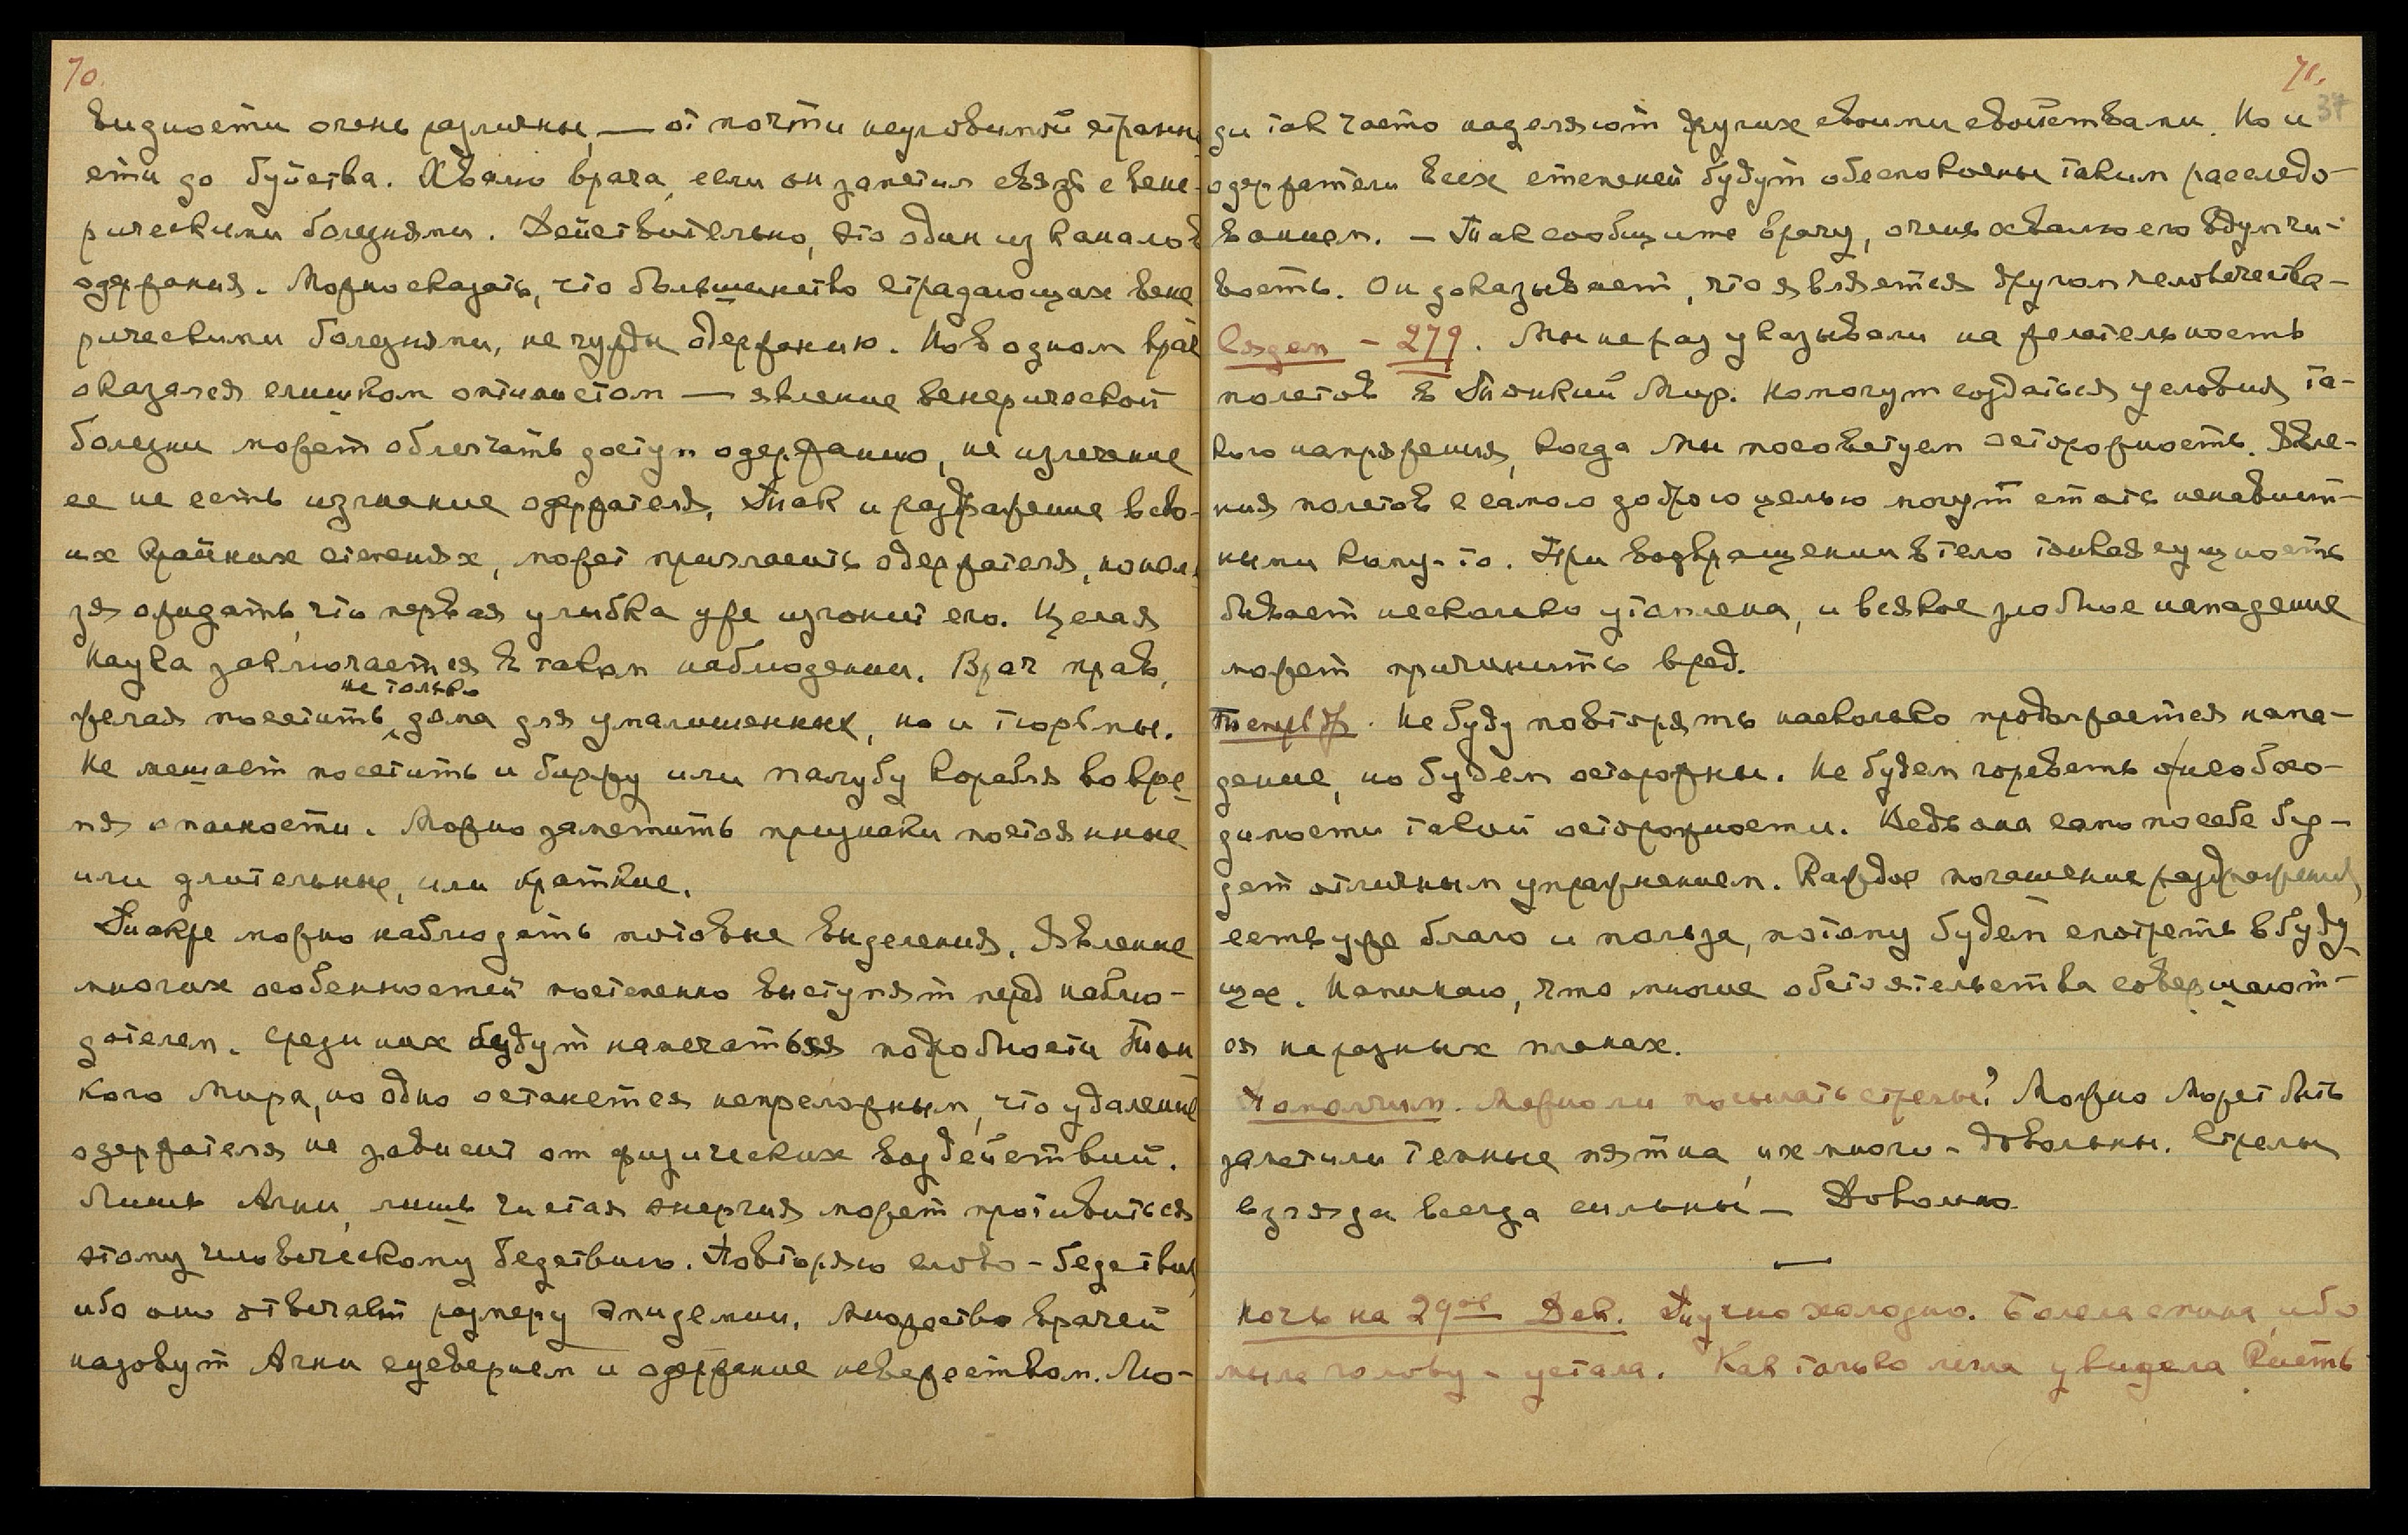 70.
видности очень различны, — от почти неуловимой странн
сти до буйства. Хвалю врача, если он заметил связь с вене-
рическими болезнями. Действительно, это один из каналов
одержания. Можно сказать, что большинство страдающих вене
рическими болезнями, не чужды одержанию. Но в одном врач
оказался слишком оптимистом — явление венерической
болезни может облегчать доступ одержанию, но излечение
ее не есть изгнание одержателя. Так и раздражение в сво-
их крайних степенях, может пригласить одержателя, но нель
зя ожидать, что первая улыбка уже изгонит его. Целая
наука заключается в таком наблюдении. Врач прав,
не только
желая посетить дома для умалишенных, но и тюрьмы.
Не мешает посетить и биржу или палубу корабля во вре
мя опасности. Можно заметить признаки постоянные
или длительные, или краткие.
Также можно наблюдать потовые выделения. Явление
многих особенностей постепенно выступят перед наблю-
дателем. Среди них будут намечаться подробности Тон
кого Мира, но одно останется непреложным, что удаление
одержателя не зависит от физических воздействий.
Лишь Агни, лишь чистая энергия может противиться
этому человеческому бедствию. Повторяю слово - бедствие,
ибо оно отвечает размеру эпидемии. Множество врачей
назовут Агни суеверием и одержание невежеством. Лю-
71.
37
ди так часто наделяют других своими свойствами. Но и
одержатели всех степеней будут обеспокоены таким расследо-
ванием. - Так сообщите врачу, очень хвалю его вдумчи-
вость. Он доказывает, что является другом человечества -
Сядем - 279. Мы не раз указывали на желательность
полетов в Тонкий Мир. Но могут создаться условия та-
кого напряжения, когда Мы посоветуем осторожность. Явле-
ния полетов с самою доброю целью могут стать ненавист-
ными кому-то. При возвращении в тело тонкая сущность
бывает несколько утомлена, и всякое злобное нападение
может причинить вред.
Не буду повторять насколько продолжается напа-
дение, но будем осторожны. Не будем горевать о необхо-
димости такой осторожности. Ведь она само по себе бу-
дет отличным упражнением. Каждое погашение раздражения,
есть уже благо и польза, потому будем смотреть в буду
щее. Напомню, что многие обстоятельства совершают-
ся на разных планах.
Помолчим. Можно ли посылать стрелы? Можно Может быть
заметили темные пятна их много - довольны. Стрелы
сзади всегда сильны - Довольно.
—
Ночь на 29ое Дек. холодно. Болела спина, ибо
мыла голову - устала. Как только легла увидела Кисть